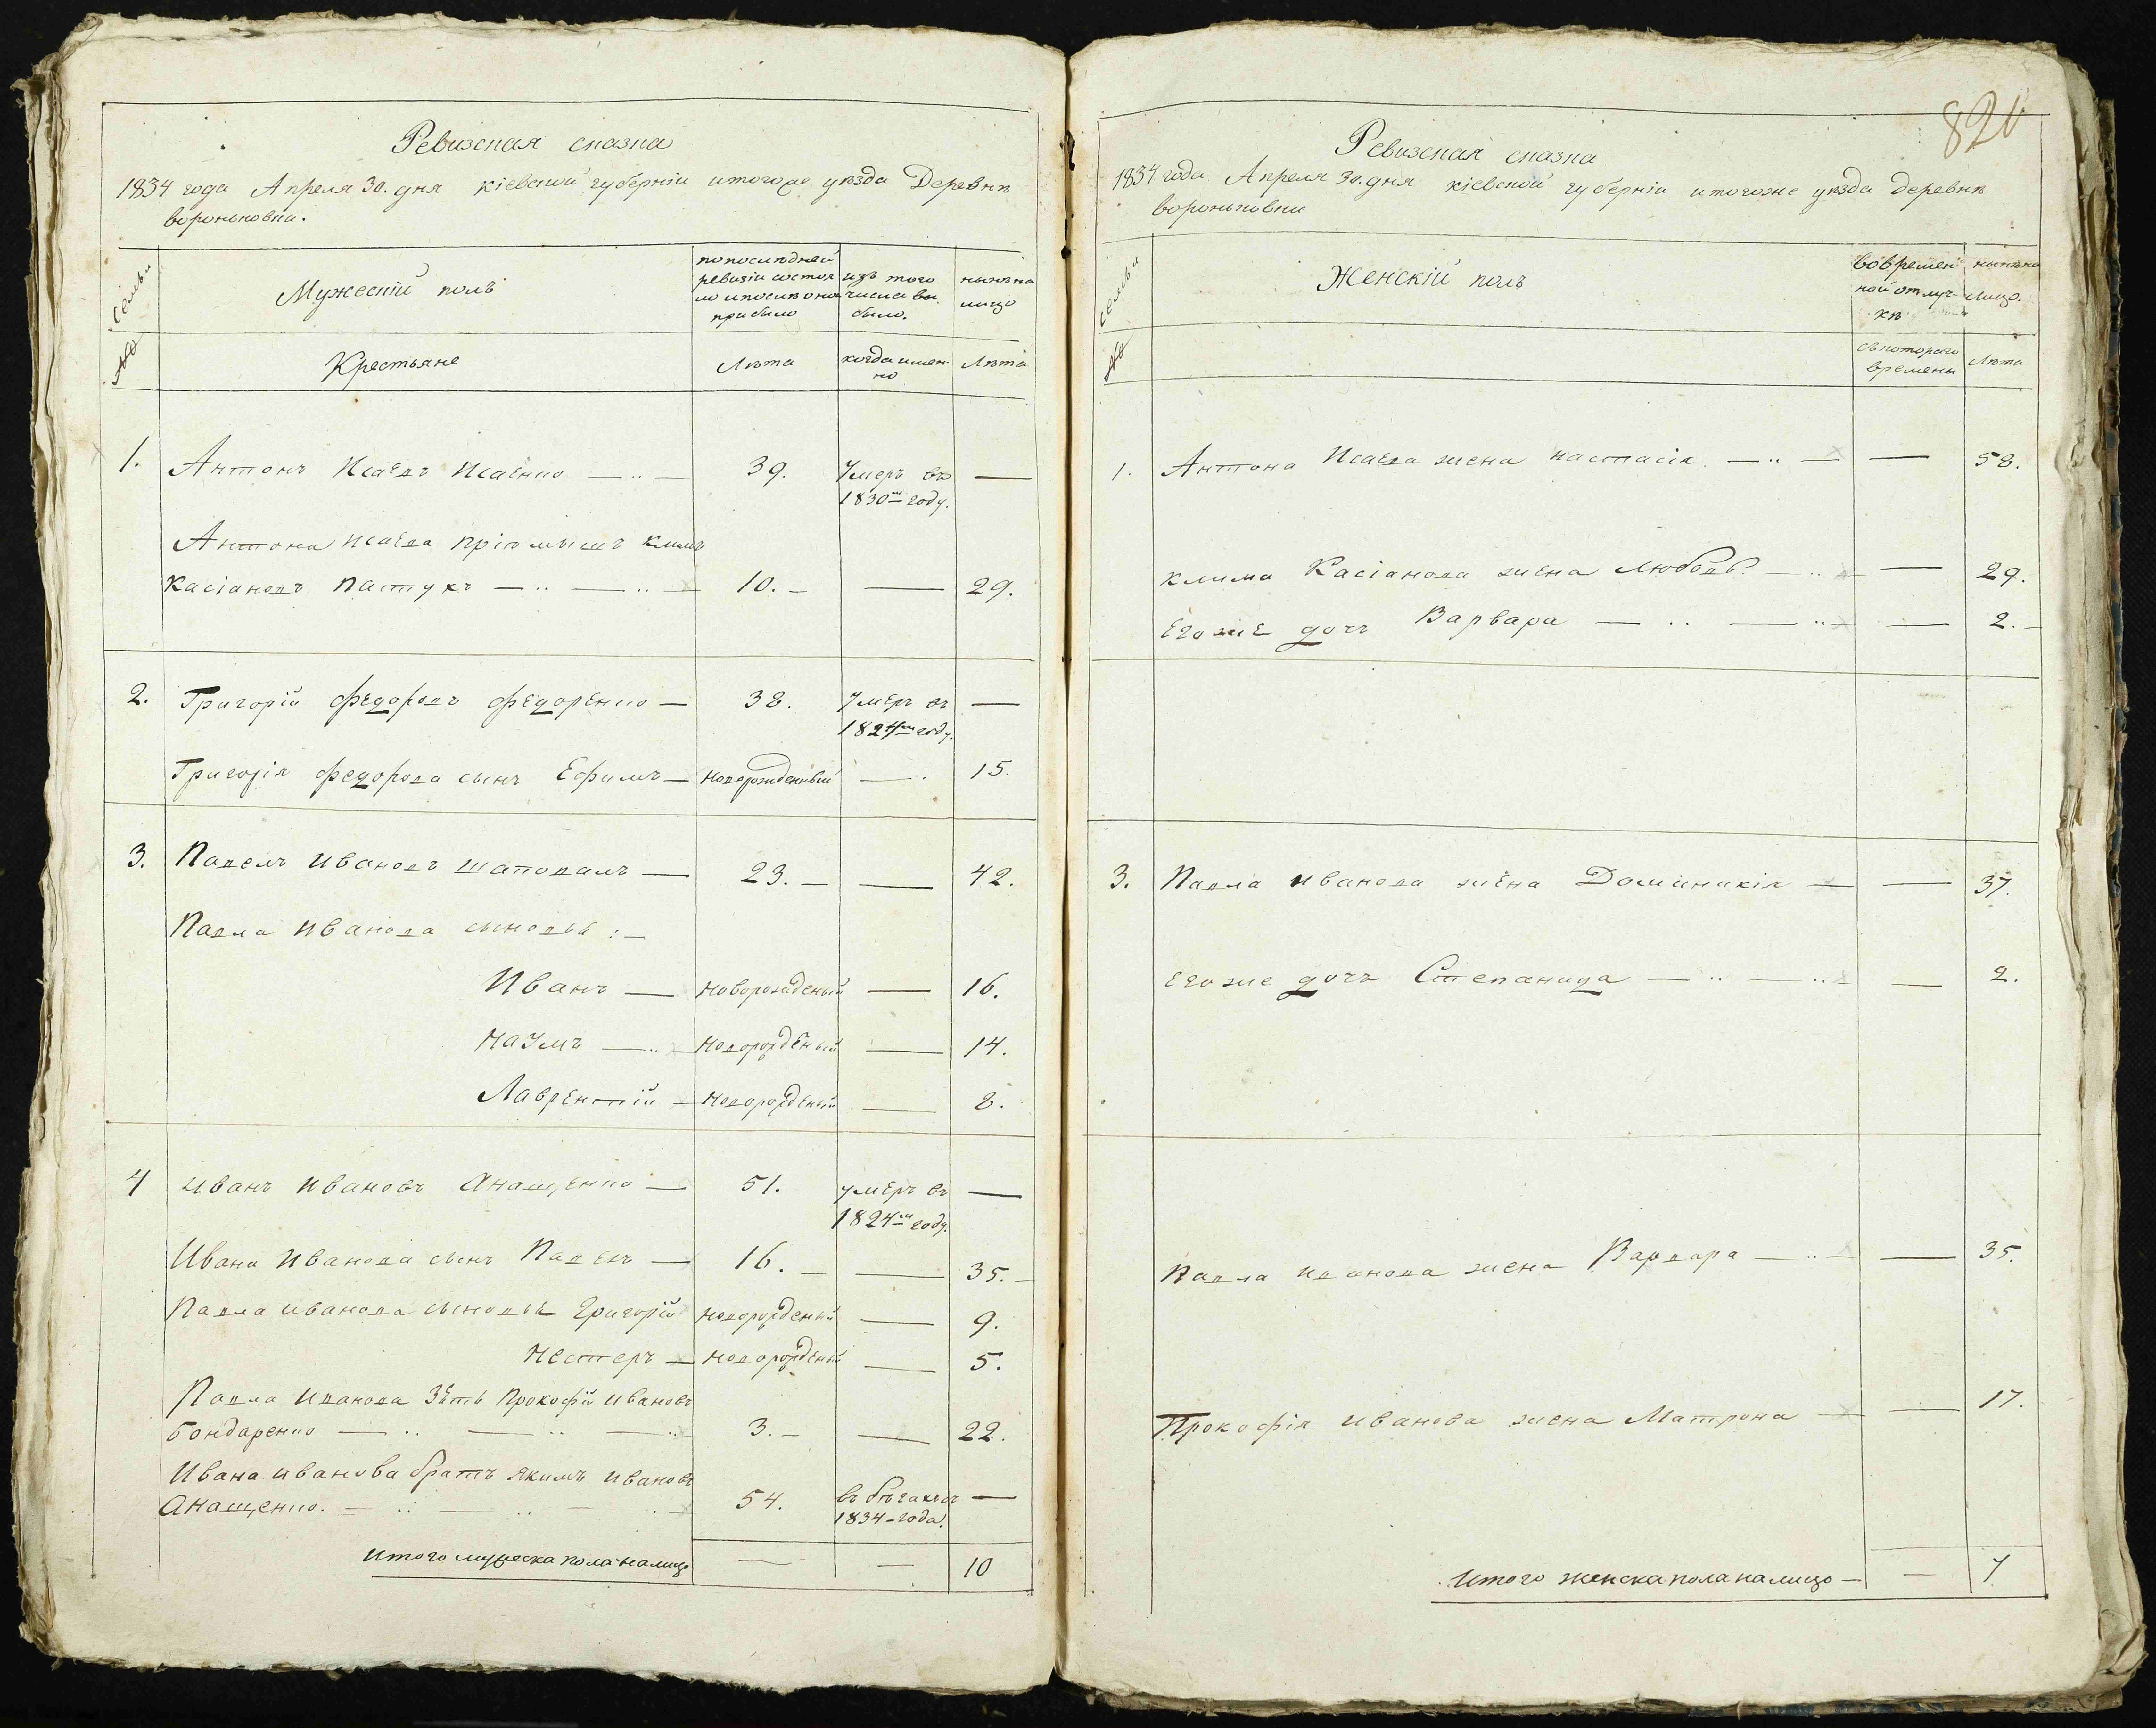 Ревизская сказка
1834 года Апреля 30. дня кіевской губерніи итогоже уѣзда Деревнѣ
вороньковки.
Семьи
Мужескій полъ
попослѣдней
ревизіи состоя
ло ипослѣ оной
прибыло
изъ того
числа вы
было.
нынѣ на
лицо
№
Крестьяне
Лѣта
когда имен
но
Лѣта
1. Антонъ Исаевъ Исаенко — 39. Умеръ въ —
1830м году.
Антона Исаева пріемышъ климъ
Касіановъ пастухъ — 10. — — 29.
2. Григорій Федоровъ Федоренко — 38. Умеръ въ —
1824м году.
Григорія Федорова сынъ Ефимъ — новорожденный — 15.
3. Павелъ Ивановъ шаповалъ — 23. — — 42.
Павла Иванова сыновья : —
Иванъ — новорожденый — 16.
Наумъ — новорожденый — 14.
Лаврентій — новорожденый — 8.
4 Иванъ Ивановъ Анащенко — 51. умеръ въ —
1824м году.
Ивана Иванова сынъ Павелъ — 16. — — 35. —
Павла иванова сыновья Григорій новорожденый — 9.
Нестеръ — новорожденый — 5.
Павла Иванова зѣть Прокофій Ивановъ
Бондаренко — 3. — — 22.
Ивана иванова братъ якимъ Ивановъ
Анащенко. — 54. въ бѣгахъ съ —
1834 - года.
Итого мужеска пола налицо — — 10
820
Ревизская сказка
1834 года Апреля 30. дня кіевской губерніи итогоже уѣзда деревнѣ
вороньковки
Семьи
Женскій полъ
вовремен
ной отлуч-
кѣ
нынѣ на
лицо.
№
съ котораго
времены
Лѣта
1. Антона Исаева жена настасія — — 58.
клима Касіанова жена Любовь — — 29.
Его же дочь Варвара — — 2. —
3. Павла Иванова жена Доминикія — — 37.
Его же дочь Степанида — — 2.
Павла Иванова жена Варвара — — 35.
Прокофія Иванова жена Матрона — — 17.
Итого женска пола налицо — — 7